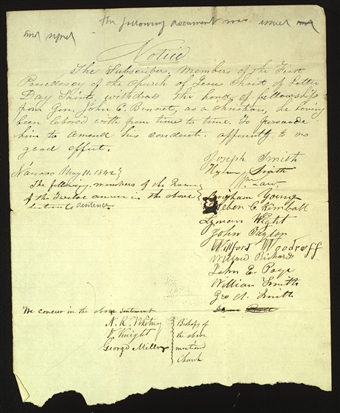 The following document was issued and
and signed
Notice
The Subscribers, members of the First
Presidency of the Church of Jesus Christ of Latter
Day Saints, withdraw the hand of fellowship
from Gen. John C. Bennett, as a Christian, he having
been labored with from time to time, to persuade
him to amend his conduct, apparently to no
good effect.
Joseph Smith
Hyrum Smith
Wm Law
Nauvoo May 11, 1842
The following members of the Quorum
of the Twelve concur in the above
sentence
Brigham Young
Heber C Kimball
Lyman Wight
John Taylor
Wilford Woodruff
Willard Richards
John E. Page
William Smith
Geo A. Smith
We concur in the above sentiment
N. K. Whitney
V. Knight
George Miller
Bishops of
the above
mentioned
Church